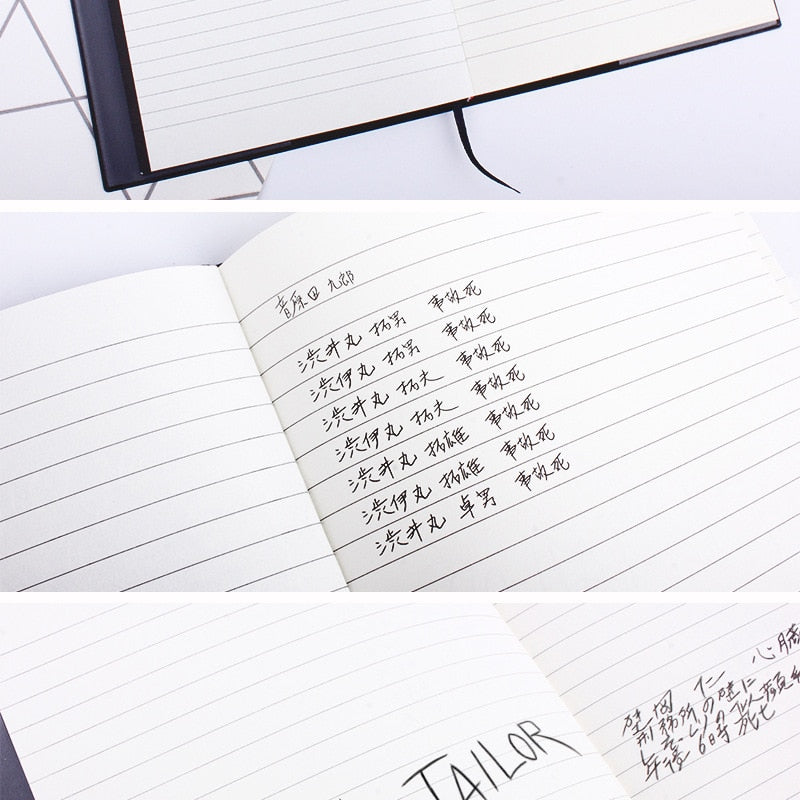 音原田 九郎
渋井丸 拓男 事故死
渋伊丸 拓男 事故死
渋井丸 拓夫 事故死
渋伊丸 拓夫 事故死
渋井丸 拓雄 事故死
渋伊丸 拓雄 事故死
渋井丸 卓男 事故死
TAILOR
仁 心臓
刑務所の壁に
6時 死亡